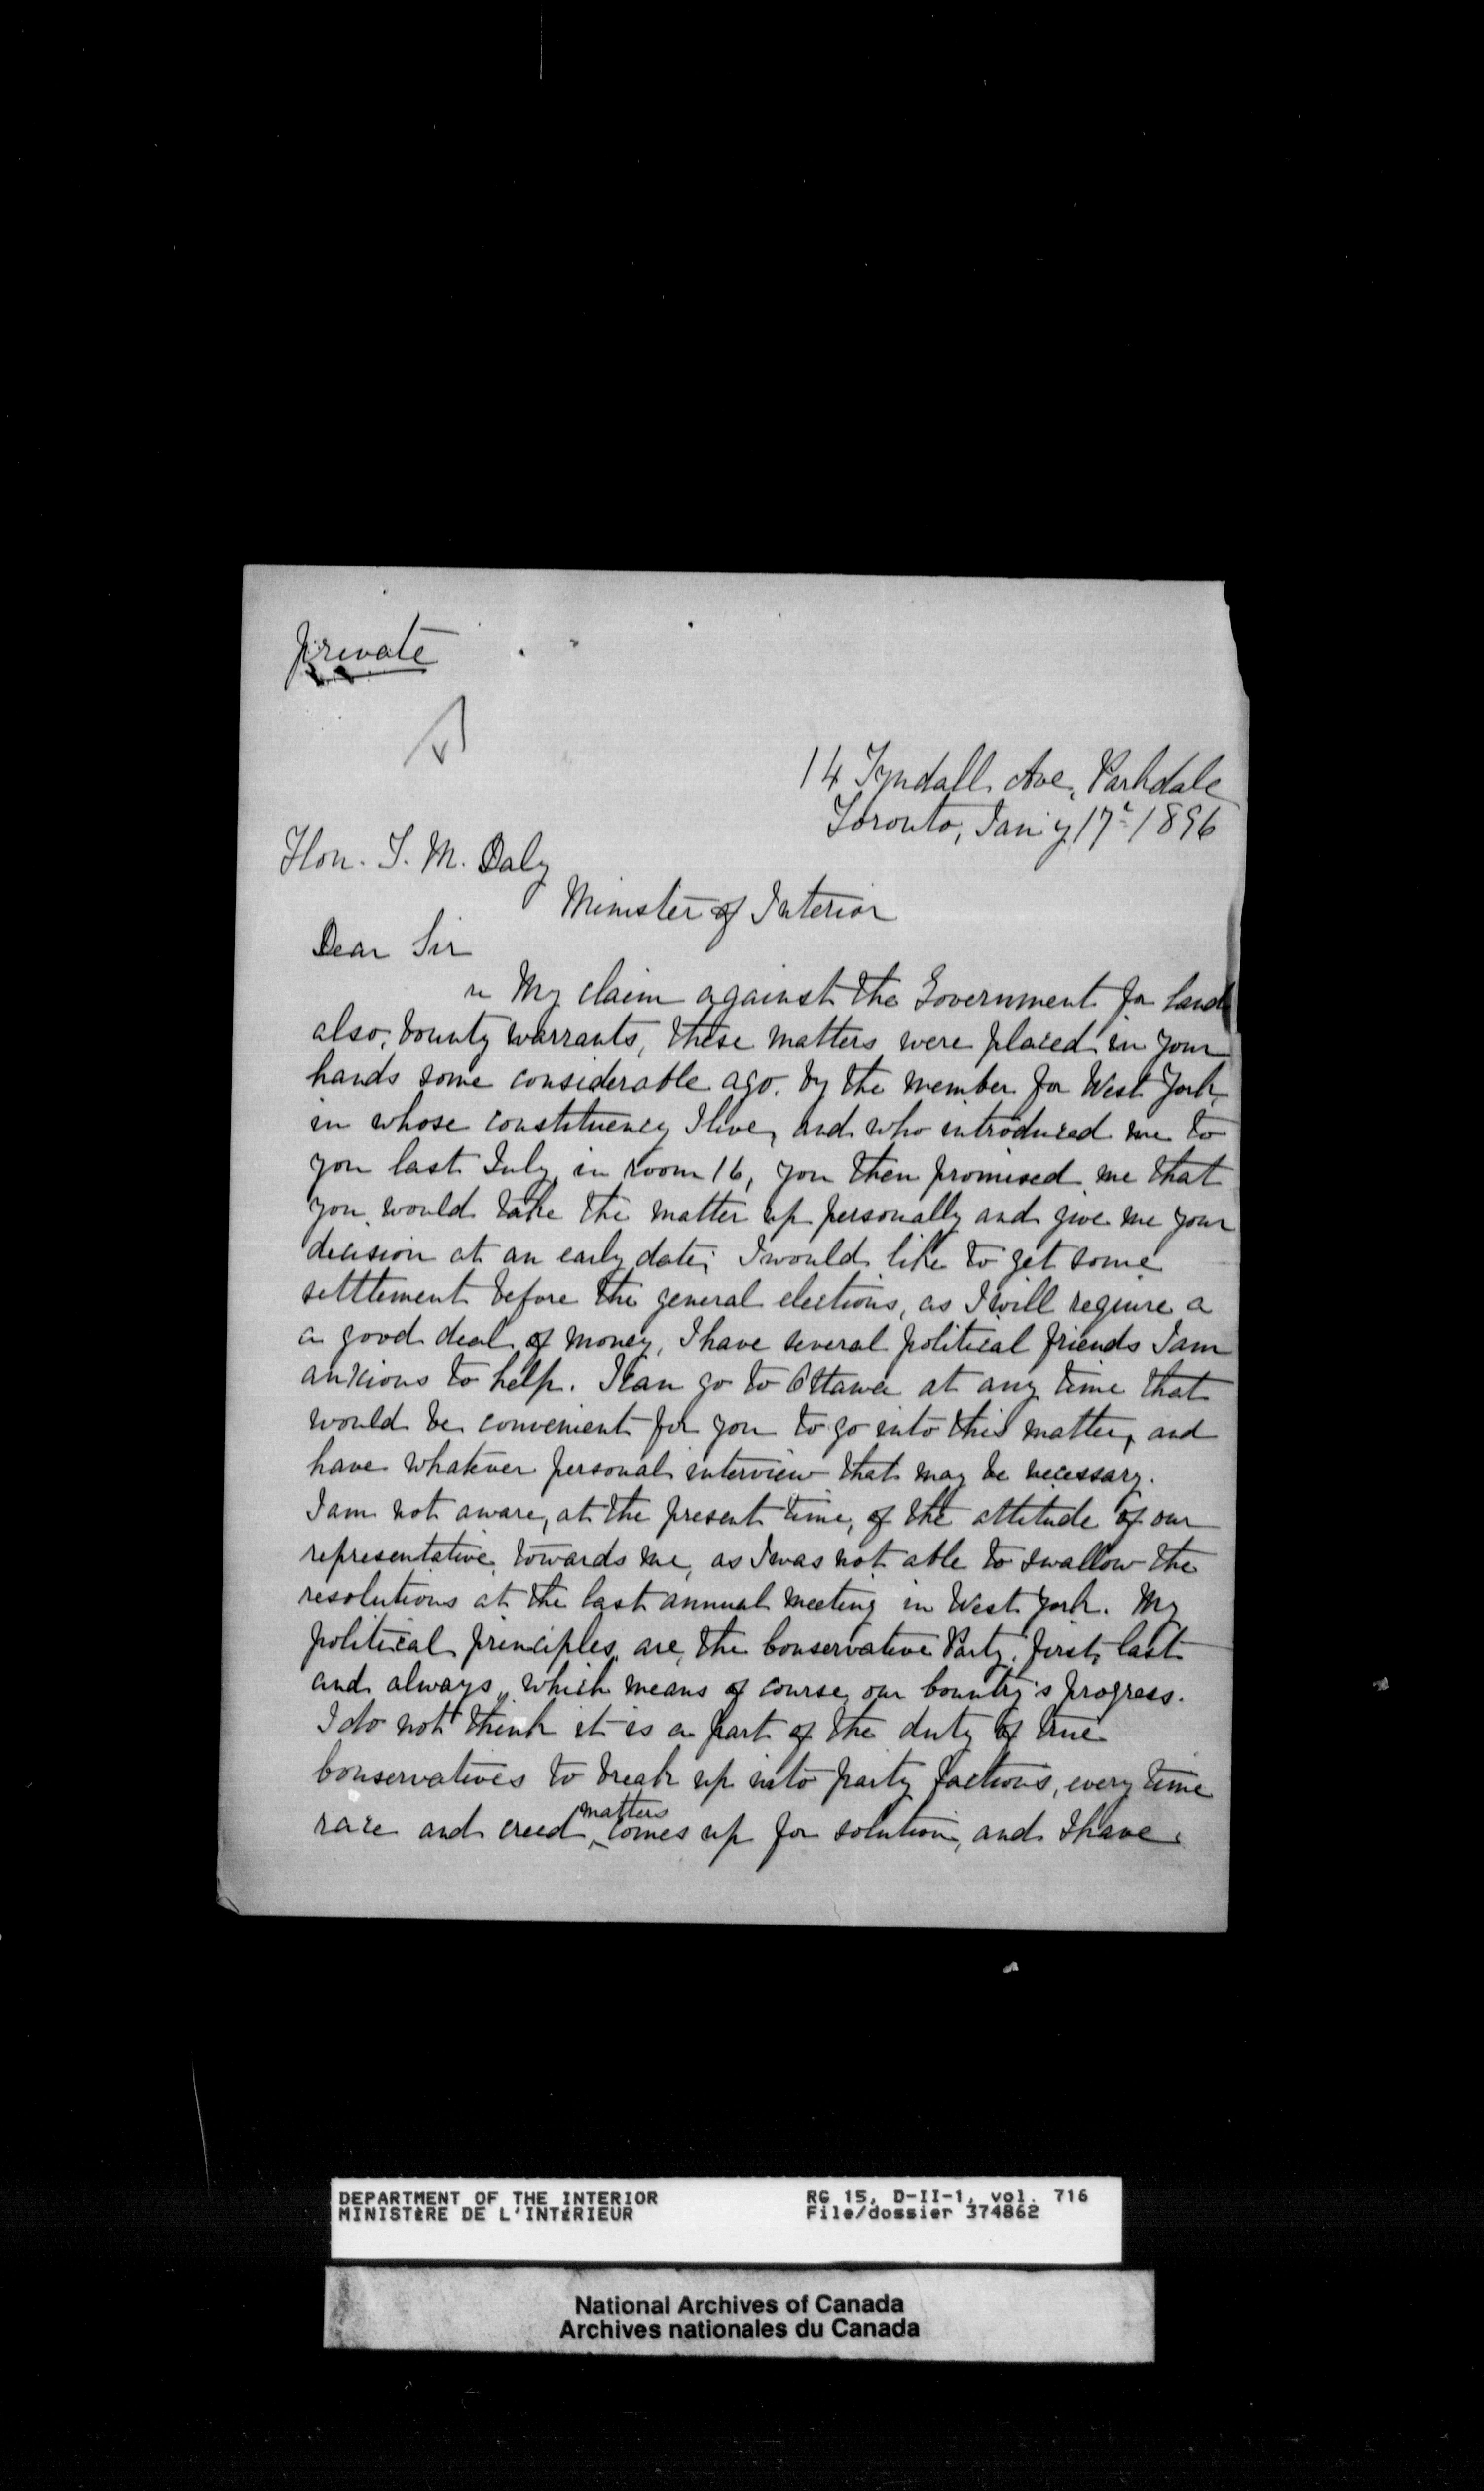 private
14 Tyndall Ave, Parkdale
Toronto, Jan'y 17th 1896
Hon. T. M. Daly
Minister of Interior
Dear Sir
re My claim against the Government for land
also, bounty warrants, these matters were placed in your
hands some considerable ago. by the member for West York,
in whose constituency I live, and who introduced me to
you last July, in room 16, you then promised me that
you would take the matter up personally and give me your
decision at an early date; I would like to get some
setttement before the general elections, as I will require a
a good deal of money, I have several political friends I am
anxious to help. I can go to Ottawa at any time that
would be convenient for you to go into this matter, and
have whatever personal interview that may be necessary.
I am not aware, at the present time, of the attitude of our
representative towards me, as I was not able to swallow the
resolutions at the last annual meeting in West York. My
political principles are, the Conservative Party, first, last
and always, which means of course, our Country's progress.
I do not think it is a part of the duty of true
Conservatives to break up into party factions, every time
race and creed matters comes up for solution, and I have
DEPARTMENT OF THE INTERIOR
MINISTÈRE DE L'INTÉRIEUR
RG 15, D-II-1, vol. 716
File/dossier 374862
National Archives of Canada
Archives nationales du Canada